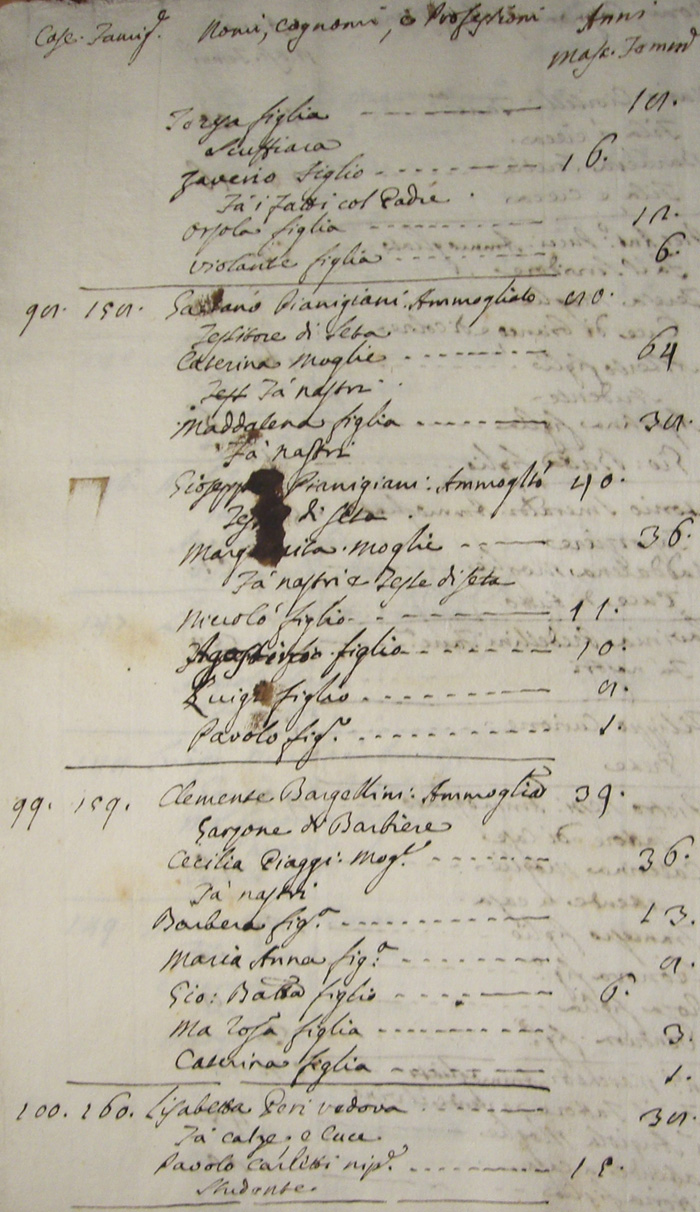 Case. Famigᵉ. Nomi, cognomi, e Professioni Anni
Masc. Femmᵉ
figlia 18.
Scuffiara
Zaverio figlio 16.
Fà i fatti col Padre
Orsola figlia
Violante figlia 6.
98. 158. Gaetano Pianigiani: Ammogliato 80.
Tessitore di Seta
Caterina Moglie 64
Fà nastri
Maddalena figlia 38.
Fà nastri
Pianigiani: Ammogliᵗᵒ 40.
di seta
Moglie 36.
Fà nastri e Tesse di seta
Niccolò figlio 11.
Agostino figlio 10.
Luigi figlio 8.
Pavolo figᵒ. 1.
99. 159. Clemente Bargellini: Ammogliaᵗᵒ 39.
Garzone di Barbiere
Cecilia Piaggi: Mogᵉ. 36.
Fà nastri
Barbera figᵃ. 13.
Maria Anna figᵃ. 8.
Gio: Batta figlio 6.
Mᵃ Rosa figlia 3.
Caterina figlia 1.
100. 160. Lisabetta Peri vedova 38.
Fà calze, e Cuce
Pavolo Carletti nipᵉ. 15.
Studente.